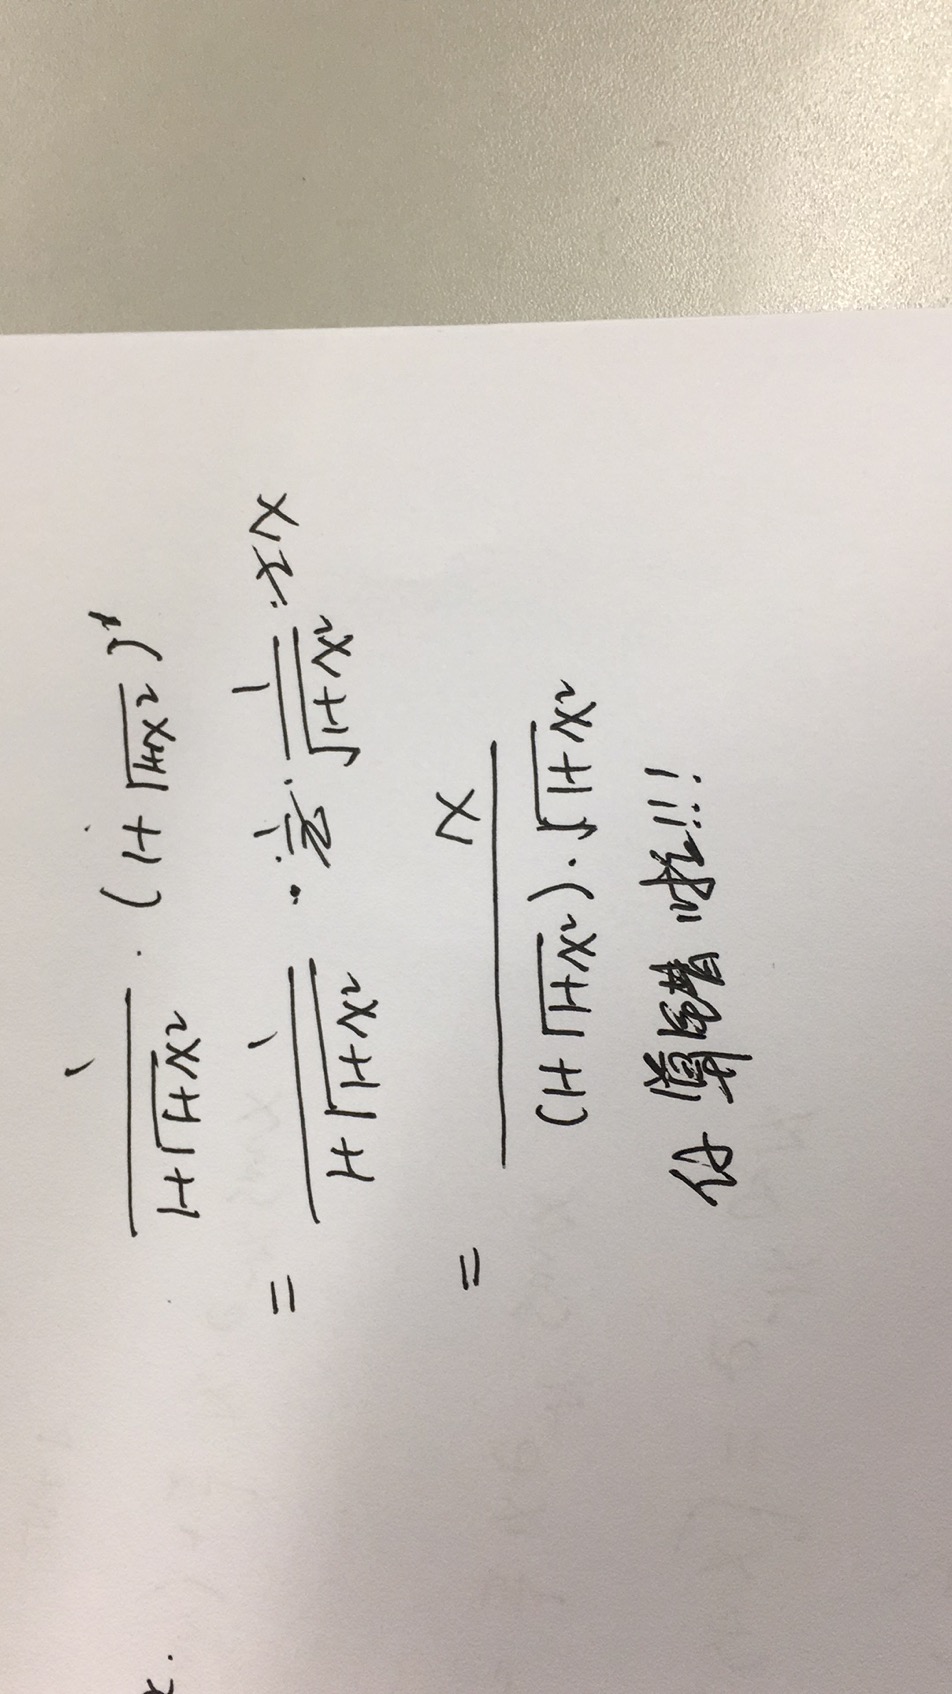 1/(1+√(1+x²)) · (1+√(1+x²))'
= 1/(1+√(1+x²)) · 1/2 · 1/√(1+x²) · 2x
= x/((1+√(1+x²)) · √(1+x²))
仔 算 啦!!!